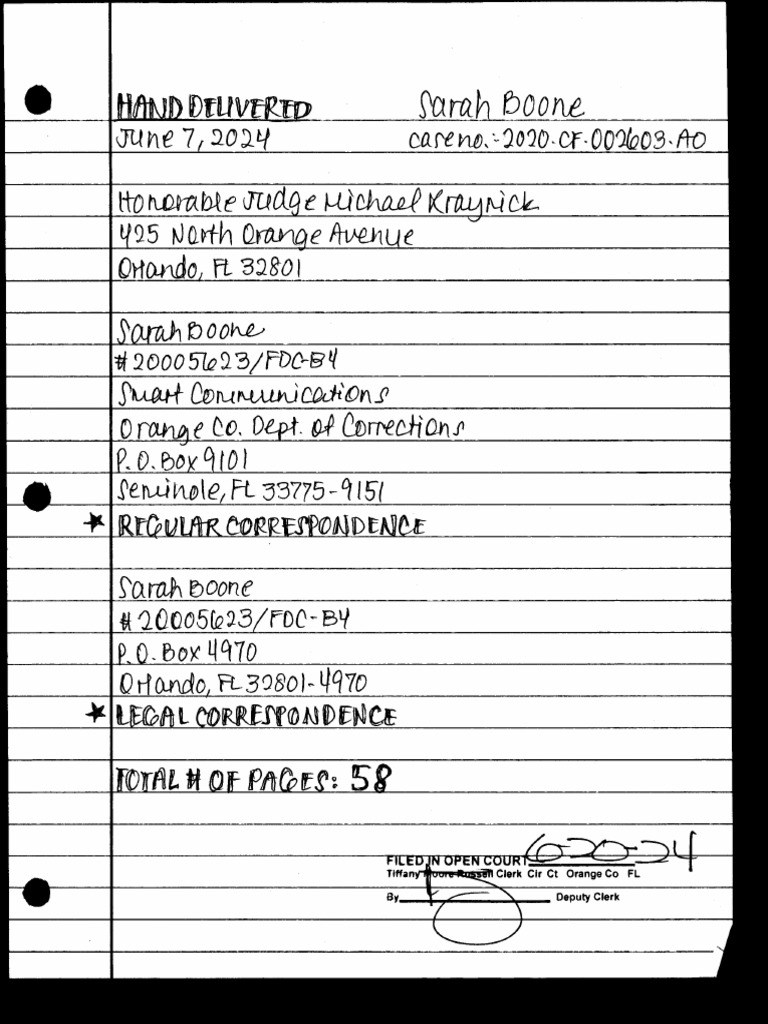 HAND DELIVERED Sarah Boone
June 7, 2024 case no.:-2020-CF-002603-AO
Honorable Judge Michael Kraynick
425 North Orange Avenue
Orlando, FL 32801
Sarah Boone
#20005623/FDC-B4
Smart Communications
Orange Co. Dept. of Corrections
P.O. Box 9101
Seminole, FL 33775-9151
★ REGULAR CORRESPONDENCE
Sarah Boone
#20005623/FDC-B4
P.O. Box 4970
Orlando, FL 32801-4970
★ LEGAL CORRESPONDENCE
TOTAL # OF PAGES: 58
FILED IN OPEN COURT 6-20-24
Tiffany Moore Russell Clerk Cir Ct Orange Co FL
By Deputy Clerk